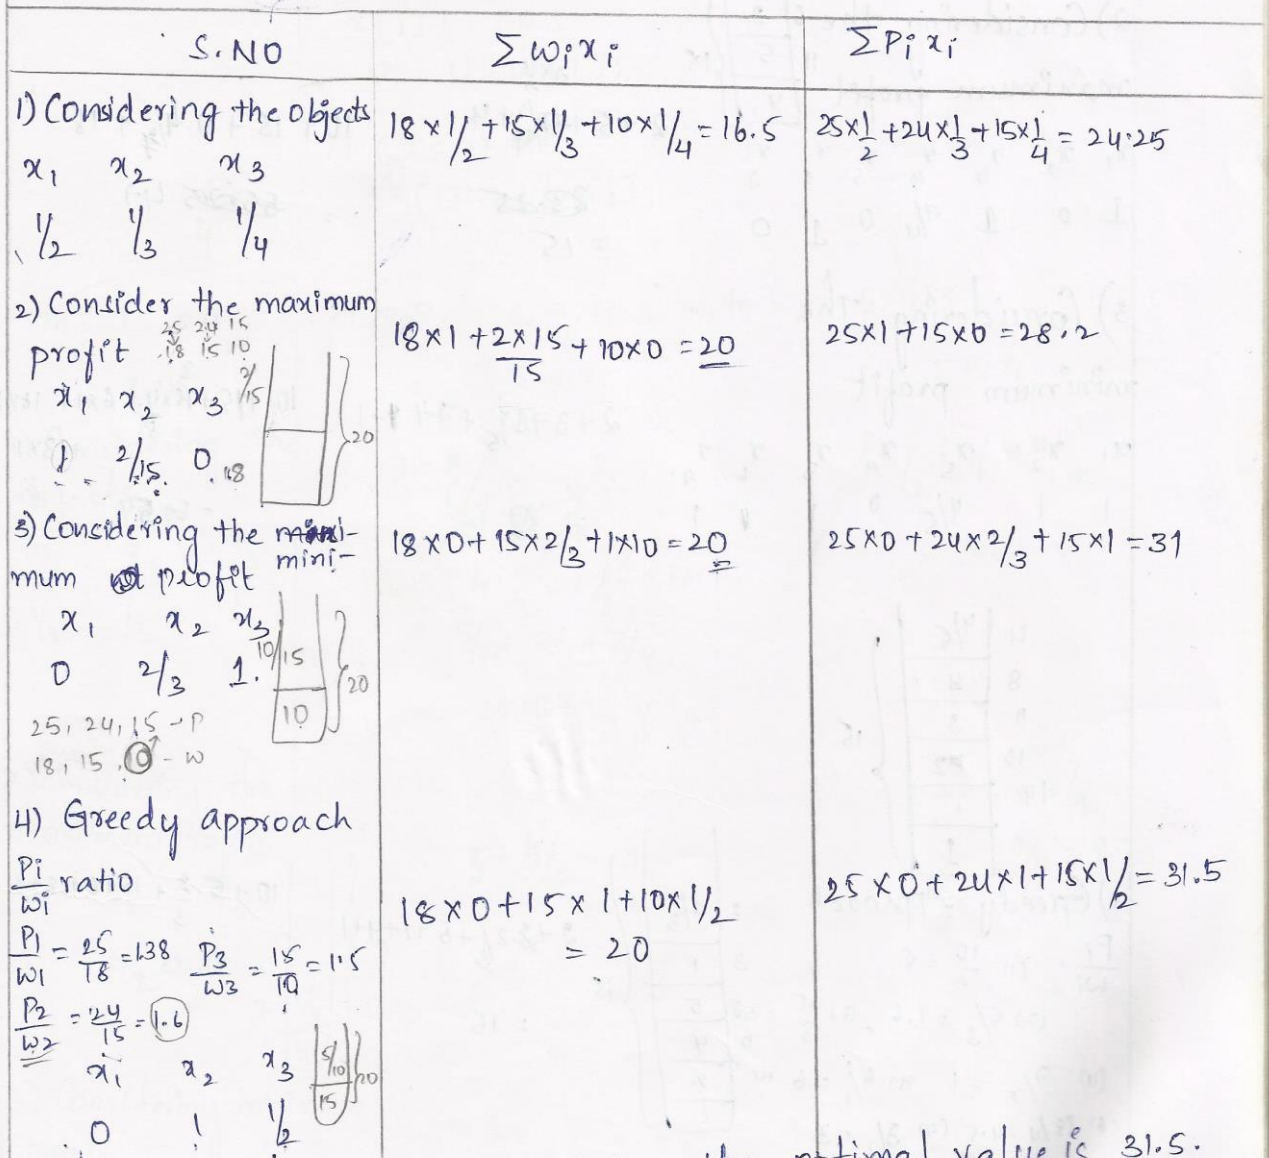 S.NO
Σwixi
Σpixi
1) Considering the objects
x1 x2 x3
1/2 1/3 1/4
18×1/2+15×1/3+10×1/4=16.5
25×1/2+24×1/3+15×1/4=24.25
2) Consider the maximum
profit
25 24 15
18 15 10
x1 x2 x3
1 2/15 0
2/15
18
20
18×1+2×15/15+10×0=20
25×1+15×0=28.2
3) Considering the
mini-
mum profit
x1 x2 x3
0 2/3 1.
10/15
10
20
25, 24, 15 - P
18, 15, 10 - w
18×0+15×2/3+1×10=20
25×0+24×2/3+15×1=31
4) Greedy approach
Pi/wi ratio
P1/w1=25/18=1.38 P3/w3=15/10=1.5
P2/w2=24/15=1.6
x1 x2 x3
0 1 1/2
5/10
15
20
18×0+15×1+10×1/2
= 20
25×0+24×1+15×1/2=31.5
optimal value is 31.5.